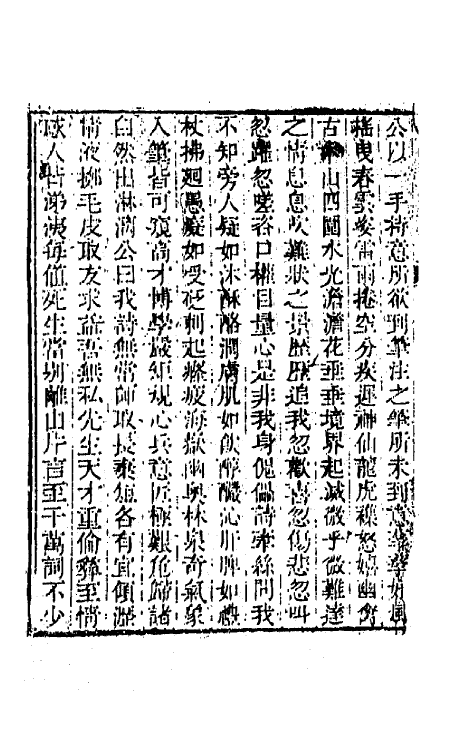 公以一手持意所欲到筆注之筆所未到意
搖曳春雲峻雷雨捲空分疾遲神仙龍虎襍怒嬉幽窗
古山四圍水光澹澹花垂垂境界起滅微乎微難逹
之情息息吹難狀之景歷歷追我忽歡喜忽傷悲忽叫
忽躍忽嗟咨口權目量心是非我身傀儡詩牽絲問我
不知旁人疑如沐酥酪潤膚肌如飲醇醲沁肝脾如禮
杖拂迴愚癡如受砭刺起瘵疲海嶽幽奧林泉奇氣象
入筆皆可窺高才博學嚴矩規心兵意匠極艱危歸諸
自然出淋漓公曰我詩無常師取長棄短各有宜傾瀝
情液擲毛皮取友求益吾無私先生天才重倫彝至情
感人皆涕洟每值死生當別離山斤言至千萬詞不少